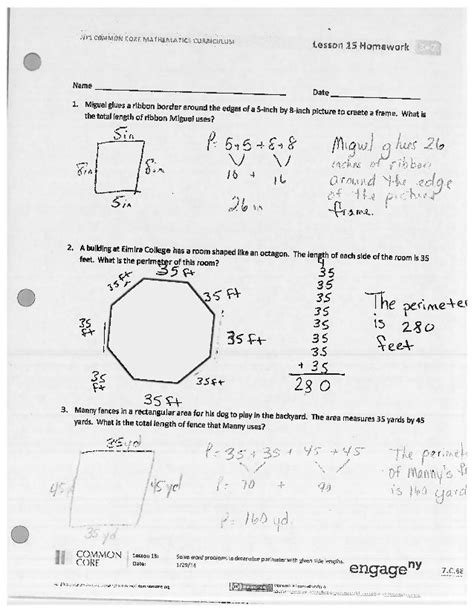 NYS COMMON CORE MATHEMATICS CURRICULUM
Lesson 15 Homework
Name
Date
1. Miguel glues a ribbon border around the edges of a 5-inch by 8-inch picture to create a frame. What is
the total length of ribbon Miguel uses?
5in
8in
8in
5in
P= 5+5+8+8
10 + 16
26 in
Miguel glues 26
inches of ribbon
around the edge
of the picture
frame.
2. A building at Elmira College has a room shaped like an octagon. The length of each side of the room is 35
feet. What is the perimeter of this room?
35 ft
35 ft
35 ft
35 ft
35 ft
35 ft
35 ft
35 ft
4
35
35
35
35
35
35
35
+ 35
280
The perimeter
is 280
feet
3. Manny fences in a rectangular area for his dog to play in the backyard. The area measures 35 yards by 45
yards. What is the total length of fence that Manny uses?
35 yd
45
45 yd
35 yd
P= 35 + 35 + 45 + 45
P= 70 + 90
P= 160 yd
The
of Manny's
is 160 yard
COMMON
CORE
Lesson 15:
Date:
Solve word problems to determine perimeter with given side lengths.
1/29/14
engage ny
7.C.68